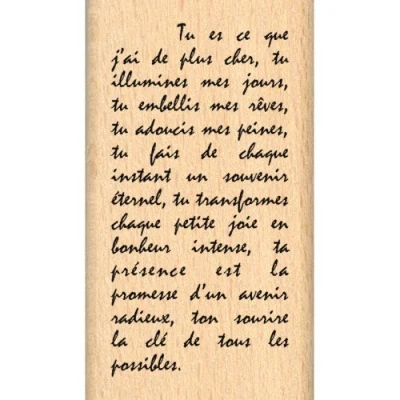 Tu es ce que
j'ai de plus cher, tu
illumines mes jours,
tu embellis mes rêves,
tu adoucis mes peines,
tu fais de chaque
instant un souvenir
éternel, tu transformes
chaque petite joie en
bonheur intense, ta
présence est la
promesse d'un avenir
radieux, ton sourire
la clé de tous les
possibles.